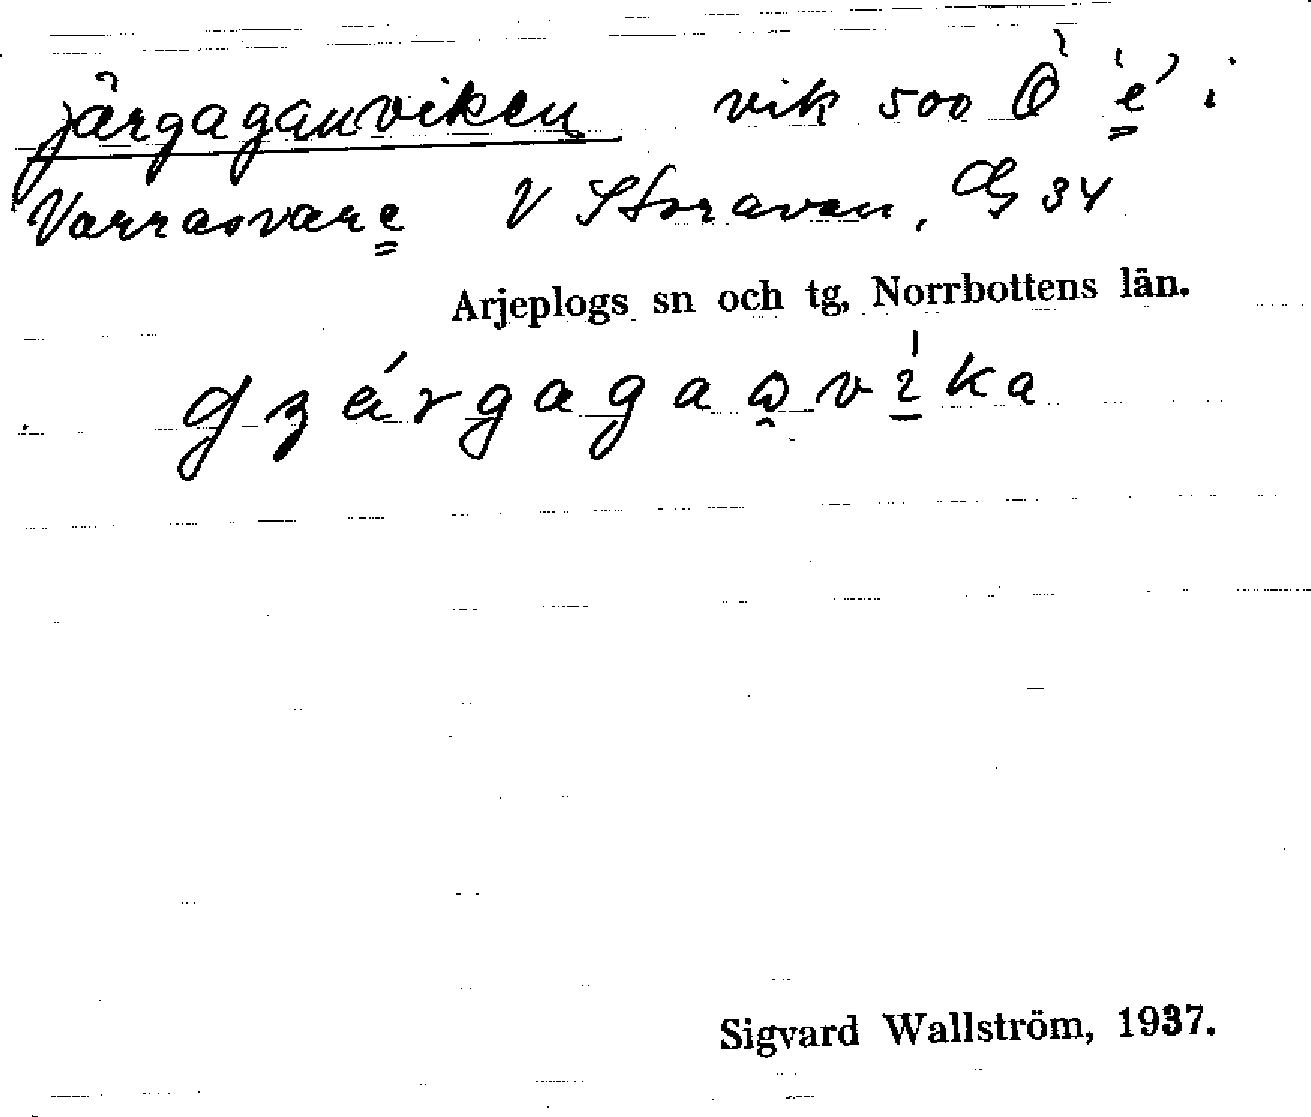 järgaganviken vik 500 Ö 'e' i
Varrasvare V Storavan, G 34
Arjeplogs sn och tg, Norrbottens län.
Sigvard Wallström, 1937.